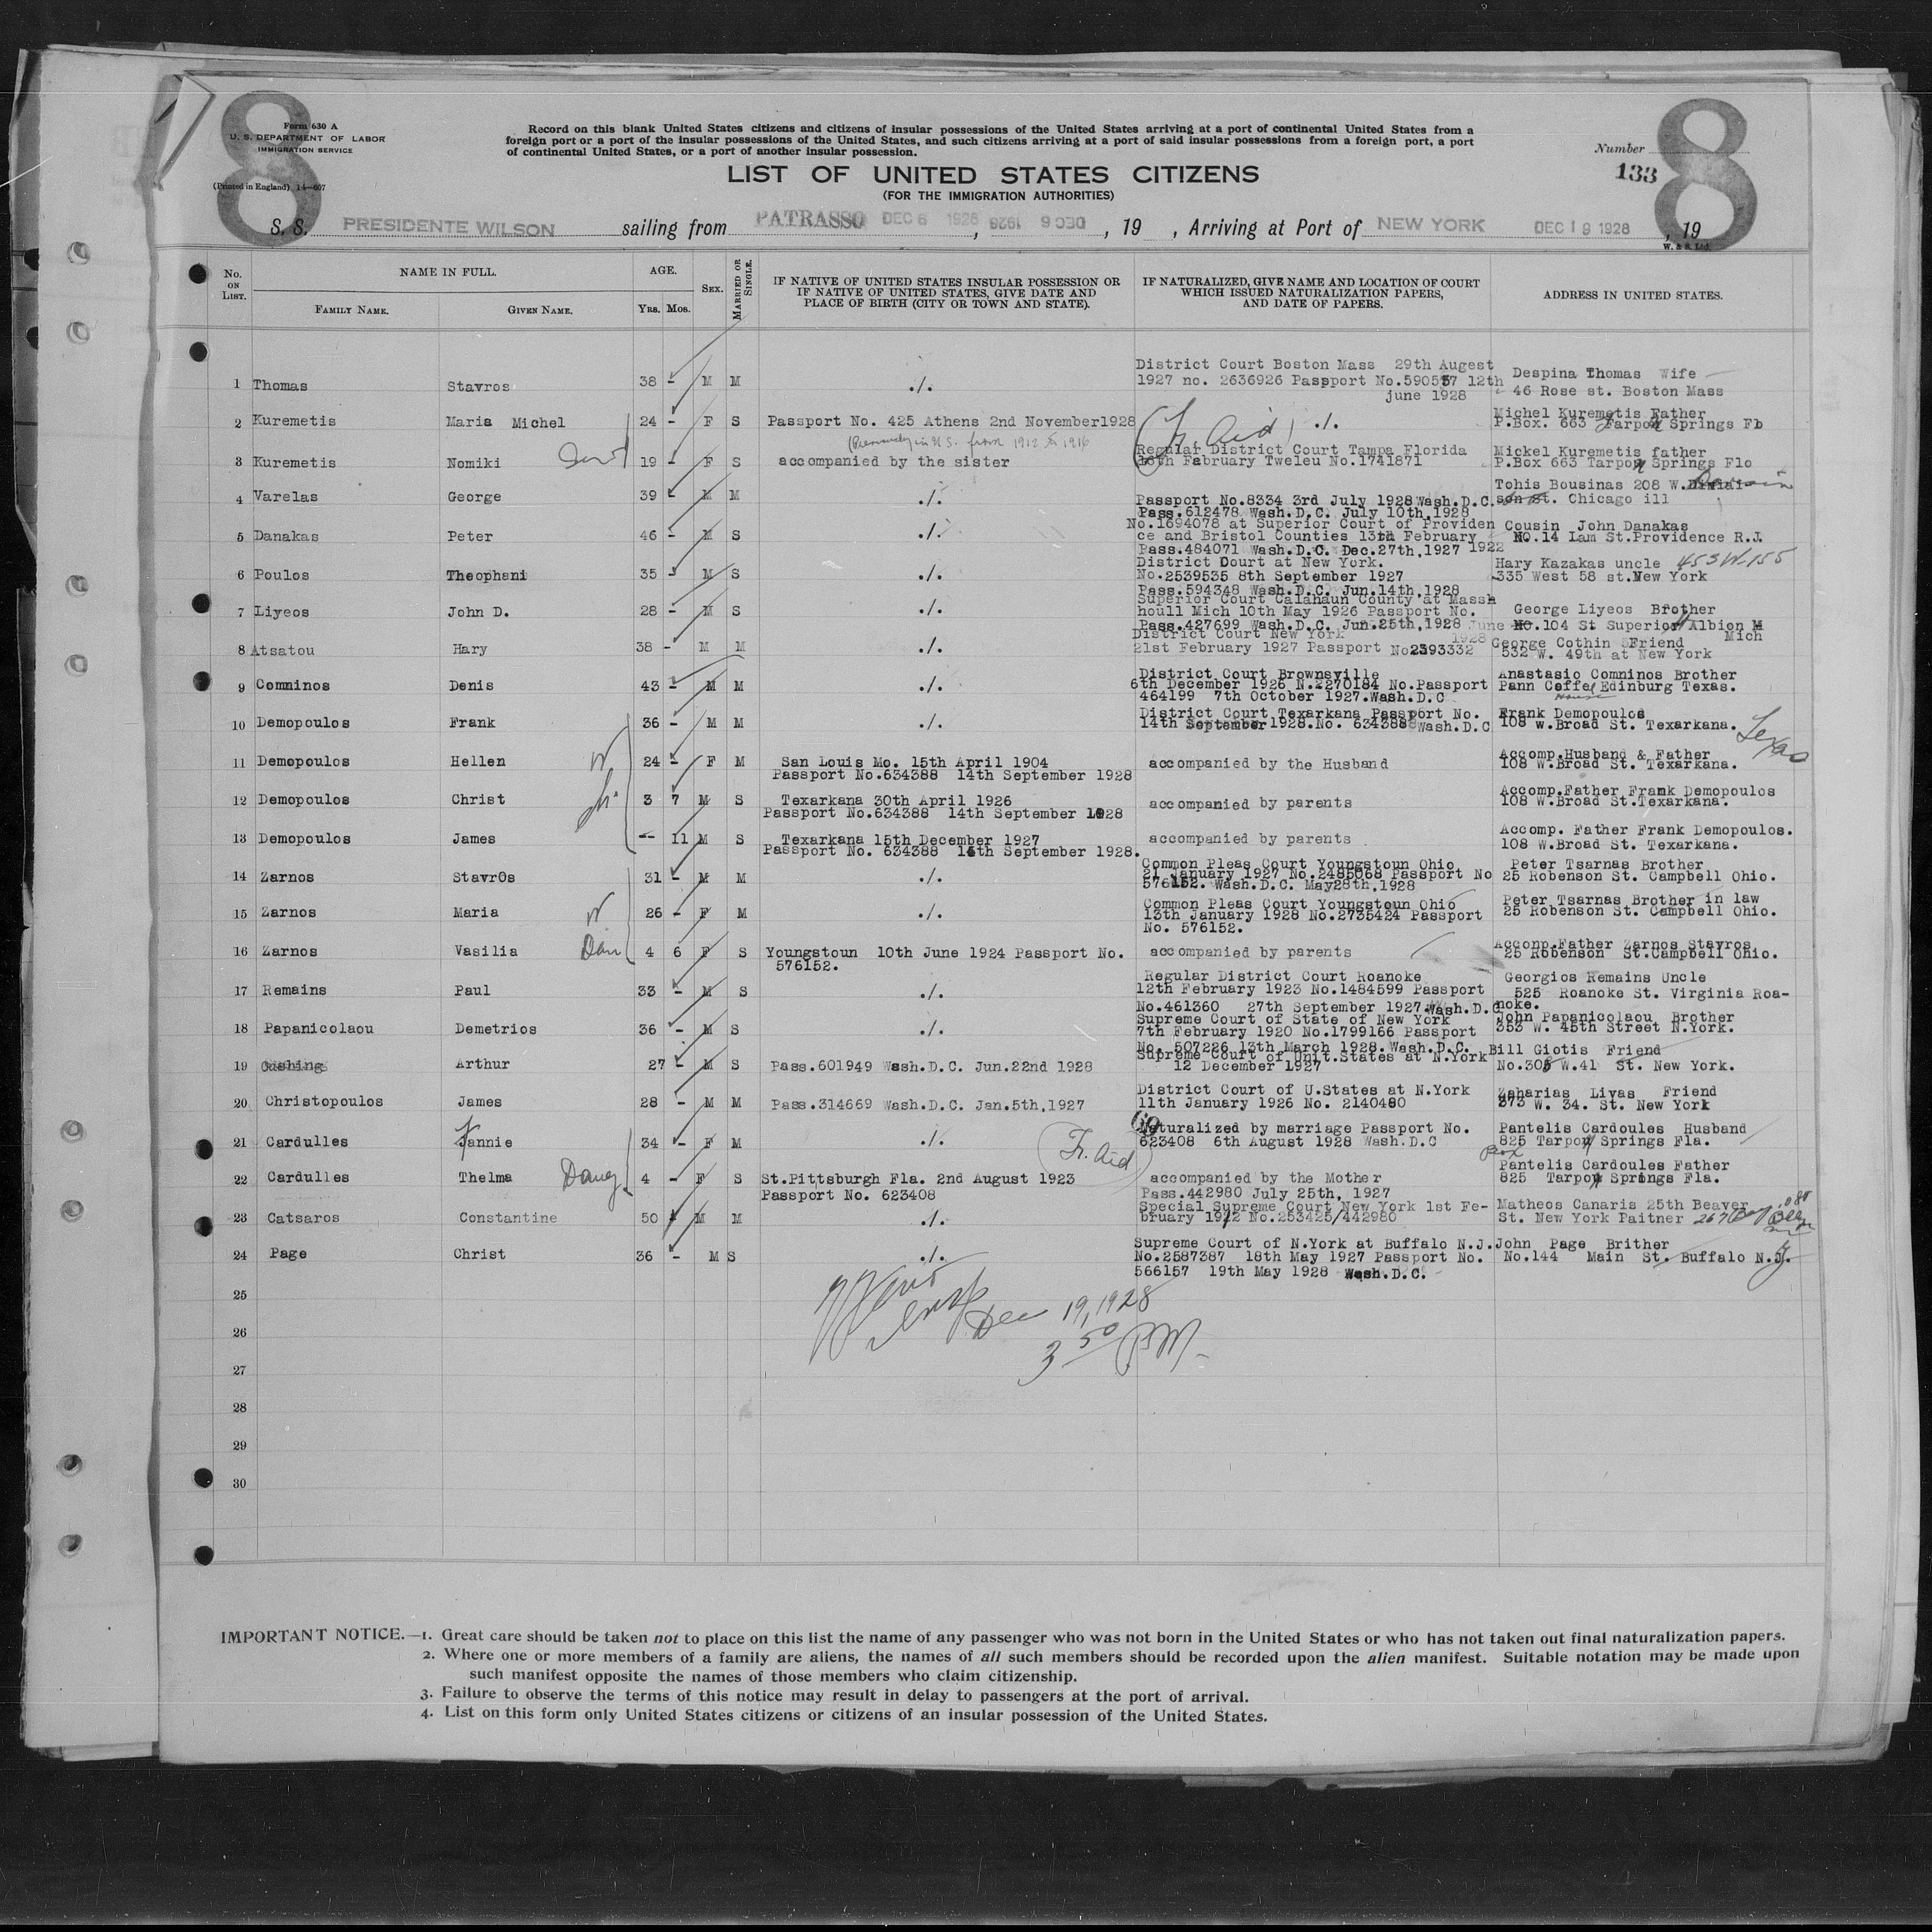 8
8
Form 630 A
U. S. DEPARTMENT OF LABOR
IMMIGRATION SERVICE
(Printed in England) 14—607
Record on this blank United States citizens and citizens of insular possessions of the United States arriving at a port of continental United States from a
foreign port or a port of the insular possessions of the United States, and such citizens arriving at a port of said insular possessions from a foreign port, a port
of continental United States, or a port of another insular possession.
Number
133
LIST OF UNITED STATES CITIZENS
(FOR THE IMMIGRATION AUTHORITIES)
S. S. PRESIDENTE WILSON sailing from PATRASSO DEC 6 1926, DEC 6 1926, 19 , Arriving at Port of NEW YORK DEC 19 1928, 19
W. & S. Ltd.
No. ON LIST. NAME IN FULL. FAMILY NAME. GIVEN NAME. AGE. Yrs. Mos. SEX. MARRIED OR SINGLE.
IF NATIVE OF UNITED STATES INSULAR POSSESSION OR
IF NATIVE OF UNITED STATES, GIVE DATE AND
PLACE OF BIRTH (CITY OR TOWN AND STATE).
IF NATURALIZED, GIVE NAME AND LOCATION OF COURT
WHICH ISSUED NATURALIZATION PAPERS,
AND DATE OF PAPERS.
ADDRESS IN UNITED STATES.
1 Thomas Stavros 38 - M M ./.
District Court Boston Mass 29th Augest
1927 no. 2636926 Passport No.590557 12th
june 1928
Despina Thomas Wife
46 Rose st. Boston Mass
2 Kuremetis Maria Michel 24 - F S Passport No. 425 Athens 2nd November1928
(Previously in U.S. from 1912 to 1916
(Tr. Aid) ./.
Michel Kuremetis Father
P.Box. 663 Tarpon Springs Fb
3 Kuremetis Nomiki 19 - F S accompanied by the sister
Regular District Court Tampa Florida
Fabruary Tweleu No.1741871
Mickel Kuremetis father
P.Box 663 Tarpon Springs Flo
4 Varelas George 39 - M M ./.
Passport No.8334 3rd July 1928 Wash.D.C.
Pass.612478 Wash.D.C. July 10th,1928
Tohis Bousinas 208 W.
son St. Chicago ill
5 Danakas Peter 46 - M S ./.
No.1694078 at Superior Court of Providen
ce and Bristol Counties 13th February
1922
Pass.484071 Wash.D.C. Dec.27th,1927
Cousin John Danakas
NO.14 Lam St.Providence R.I.
6 Poulos Theophani 35 - M S ./.
District Dourt at New York.
No.2539535 8th September 1927
Pass.594348 Wash.D.C. Jun.14th,1928
Hary Kazakas uncle 453 W-155
335 West 58 st.New York
7 Liyeos John D. 28 - M S ./.
Superior Court Calahaun County at Massh
houll Mich 10th May 1926 Passport No.
Pass.427699 Wash.D.C. Jun.25th,1928 June
1928
George Liyeos Brother
No.104 St Superior Albion M
Mich
8 Atsatou Hary 38 - M M ./.
District Court New York
21st February 1927 Passport No2393332
George Cothin Friend
532 W. 49th at New York
9 Comninos Denis 43 - M M ./.
District Court Brownsville
6th December 1926 N.2270184 No.Passport
464199 7th October 1927.Wash.D.C
Anastasio Comninos Brother
Pann Coffe Edinburg Texas.
House
10 Demopoulos Frank 36 - M M ./.
District Court Texarkana Passport No.
14th September 1928.No. 634388 Wash.D.C
Frank Demopoulos
108 W.Broad St. Texarkana.
Texas
11 Demopoulos Hellen W 24 - F M San Louis Mo. 15th April 1904
Passport No.634388 14th September 1928
accompanied by the Husband
Accomp.Husband & Father
108 W.Broad St. Texarkana.
12 Demopoulos Christ 3 7 M S Texarkana 30th April 1926
Passport No.634388 14th September 1928
accompanied by parents
Accomp.Father Frank Demopoulos
108 W.Broad St.Texarkana.
13 Demopoulos James - 11 M S Texarkana 15th December 1927
Passport No. 634388 14th September 1928.
accompanied by parents
Accomp. Father Frank Demopoulos.
108 W.Broad St. Texarkana.
14 Zarnos StavrOs 31 - M M ./.
Common Pleas Court Youngstoun Ohio
21 January 1927 No.2485068 Passport No
576152. Wash.D.C. May28th,1928
Peter Tsarnas Brother
25 Robenson St. Campbell Ohio.
15 Zarnos Maria W 26 - F M ./.
Common Pleas Court Youngstoun Ohio
13th January 1928 No.2735424 Passport
No. 576152.
Peter Tsarnas Brother in law
25 Robenson St. Campbell Ohio.
16 Zarnos Vasilia Dau 4 6 F S Youngstoun 10th June 1924 Passport No.
576152.
accompanied by parents
Acconp.Father Zarnos Stavros
25 Robenson St.Campbell Ohio.
17 Remains Paul 33 - M S ./.
Regular District Court Roanoke
12th February 1923 No.1484599 Passport
No.461360 27th September 1927.Wash.D.C
Georgios Remains Uncle
525 Roanoke St. Virginia Roa-
noke.
18 Papanicolaou Demetrios 36 - M S ./.
Supreme Court of State of New York
7th February 1920 No.1799166 Passport
No. 507226 13th March 1928.Wash.D.C.
John Papanicolaou Brother
353 W. 45th Street N.York.
19 Cushing Arthur 27 - M S Pass.601949 Wash.D.C. Jun.22nd 1928
Supreme Court of Unit.States at N.York
12 December 1927
Bill Giotis Friend
No.308 W.41 St. New York.
20 Christopoulos James 28 - M M Pass.314669 Wash.D.C. Jan.5th,1927
District Court of U.States at N.York
11th January 1926 No. 2140480
Zaharias Livas Friend
373 W. 34. St. New York
21 Cardulles Fannie 34 - F M ./.
(Tr. Aid)
Naturalized by marriage Passport No.
623408 6th August 1928 Wash.D.C
Pantelis Cardoules Husband
825 Tarpon Springs Fla.
Box
22 Cardulles Thelma Daug. 4 - F S St.Pittsburgh Fla. 2nd August 1923
Passport No. 623408
accompanied by the Mother
Pantelis Cardoules Father
825 Tarpon Springs Fla.
23 Catsaros Constantine 50 M M ./.
Pass.442980 July 25th, 1927
Special Supreme Court New York 1st Fe-
bruary 1912 No.253425/442980
Matheos Canaris 25th Beaver
St. New York Paitner 267
24 Page Christ 36 - M S ./.
Supreme Court of N.York at Buffalo N.J.
No.2587387 18th May 1927 Passport No.
566157 19th May 1928 Wash.D.C.
John Page Brither
No.144 Main St. Buffalo N.Y.
25
Dec 19, 1928
26
3 50 PM
27
28
29
30
IMPORTANT NOTICE.—1. Great care should be taken not to place on this list the name of any passenger who was not born in the United States or who has not taken out final naturalization papers.
2. Where one or more members of a family are aliens, the names of all such members should be recorded upon the alien manifest. Suitable notation may be made upon
such manifest opposite the names of those members who claim citizenship.
3. Failure to observe the terms of this notice may result in delay to passengers at the port of arrival.
4. List on this form only United States citizens or citizens of an insular possession of the United States.